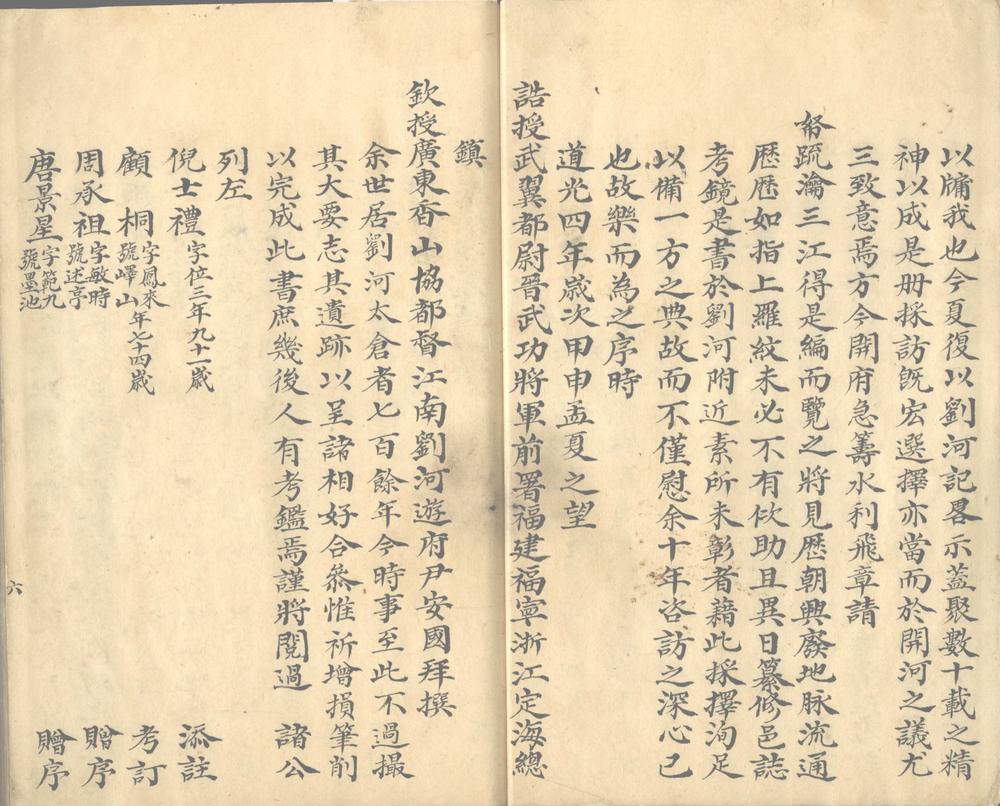 以牖我也今夏復以劉河記畧示蓋聚數十載之精
神以成是册採訪旣宏選擇亦當而於開河之議尤
三致意焉方今開府急籌水利飛章請
帑疏瀹三江得是編而覽之將見歷朝興廢地脉流通
歷歷如指上羅紋未必不有佽助且異日纂修邑誌
考鏡是書於劉河附近素所未彰者藉此採擇洵足
以備一方之典故而不僅慰余十年咨訪之深心已
也故樂而為之序時
道光四年嵗次甲申孟夏之望
誥授武翼都尉晉武功將軍前署福建福寧浙江定海總
鎮
欽授廣東香山協都督江南劉河遊府尹安國拜撰
余世居劉河太倉者七百餘年今時事至此不過撮
其大要志其遺跡以呈諸相好合叅惟祈增損筆削
以完成此書庶幾後人有考鑑焉謹將閱過 諸公
列左
倪士禮 字位三年九十一嵗 添註
顧 桐 字鳳來 號嶧山 年七十四嵗 考訂
周承祖 字敏時 號述亭 贈序
唐景星 字範九 號墨池 贈序
六